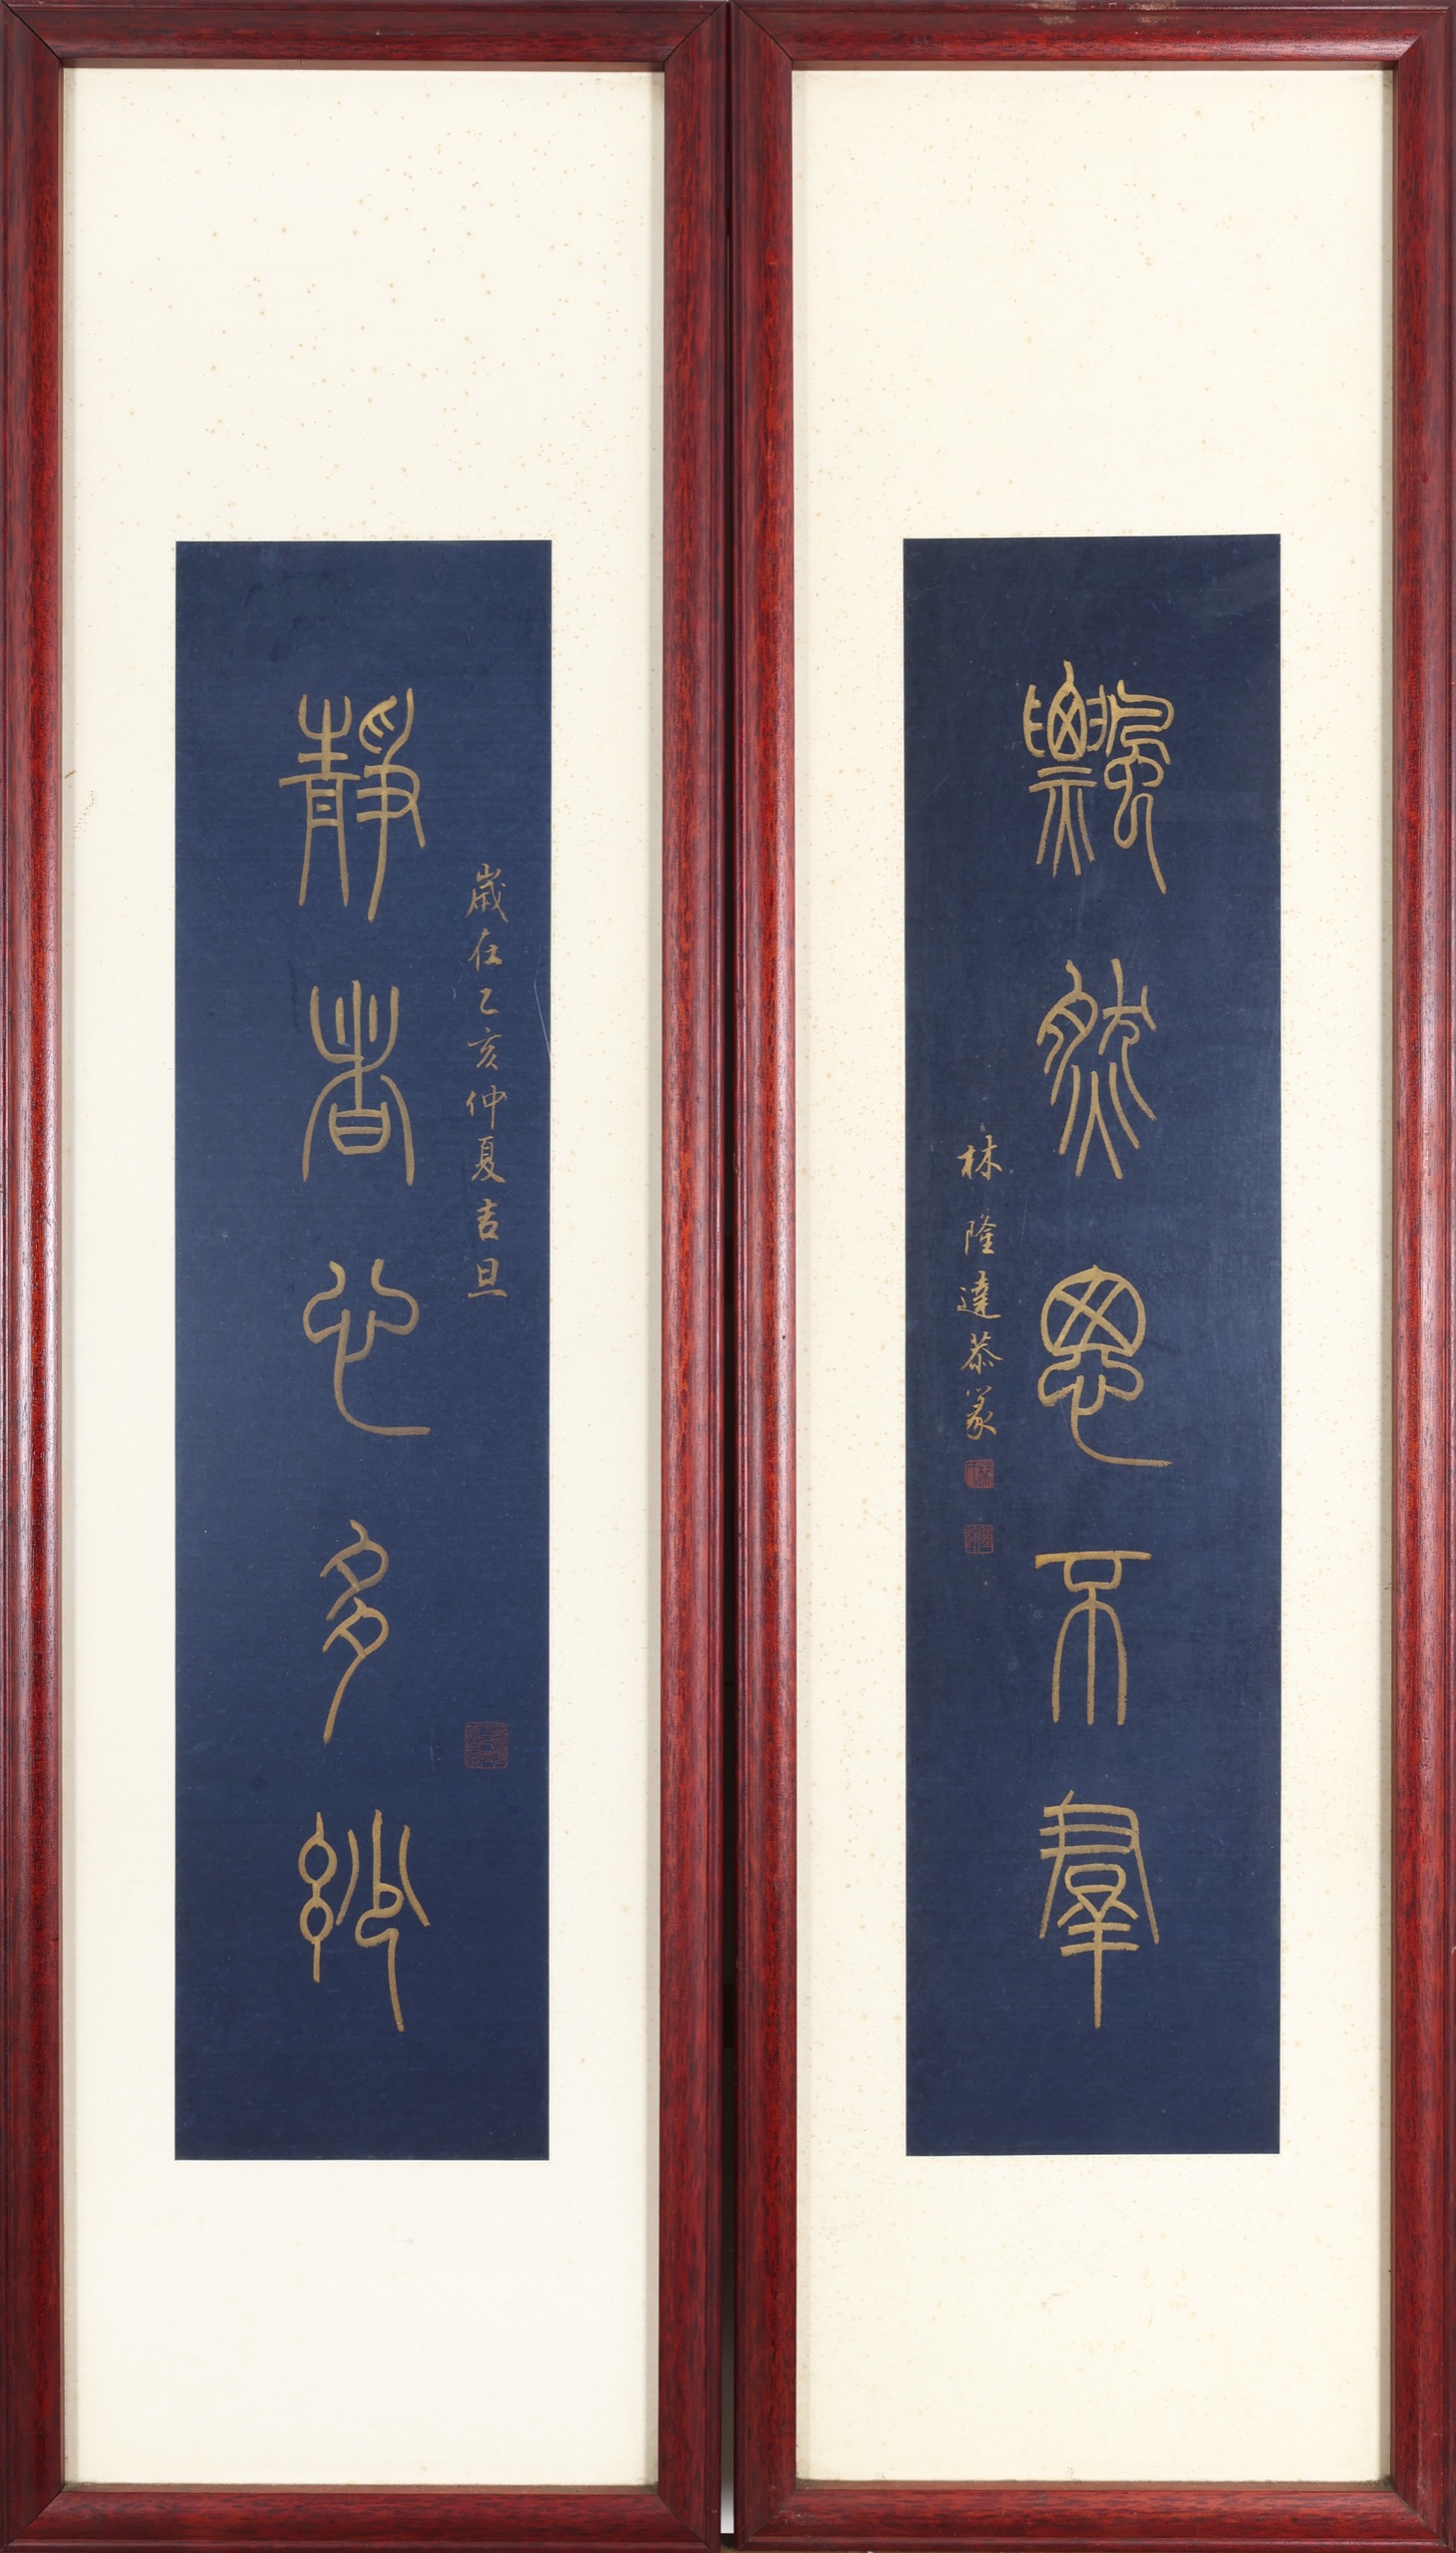 靜者心多妙
歲在乙亥仲夏吉旦
飄然思不羣
林隆達恭篆